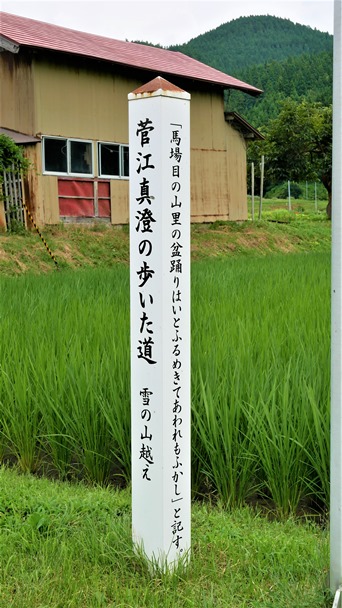 「馬場目の山里の盆踊りはいとふるめきてあわれもふかし」と記す。
菅江真澄の歩いた道 雪の山越え